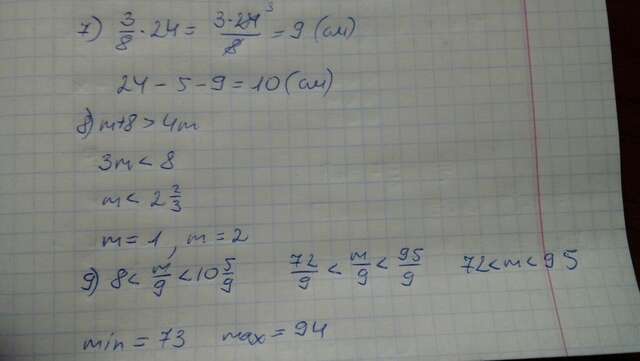 7) 3/8 · 24 = 3·24/8 3 = 9 (см)
24 - 5 - 9 = 10 (см)
8) m+8 > 4m
3m < 8
m < 2 2/3
m = 1, m = 2
9) 8 < m/9 < 10 5/9 72/9 < m/9 < 95/9 72 < m < 95
min = 73 max = 94